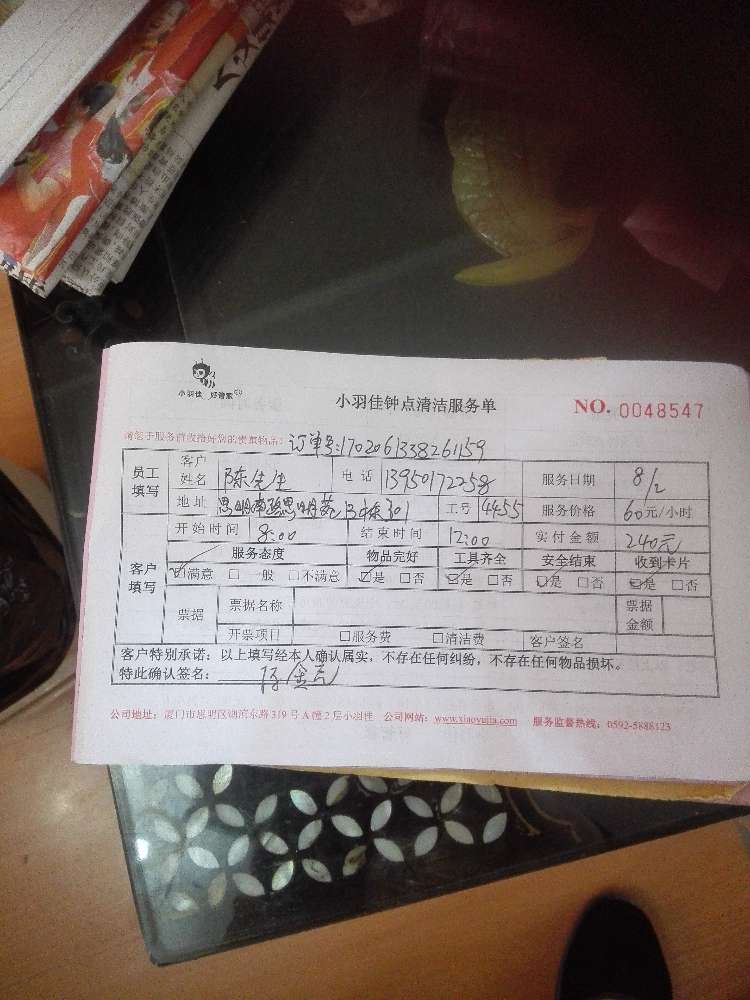 小羽佳 好管家
小羽佳钟点清洁服务单
NO. 0048547
请您于服务前收拾好您的贵重物品: 订单号:1702061338261159
员工填写 客户姓名 陈先生 电话 13950172258 服务日期 8/2
地址 思明南路思明苑 301 工号 4455 服务价格 60元/小时
客户填写 开始时间 8:00 结束时间 12:00 实付金额 240元
服务态度 物品完好 工具齐全 安全结束 收到卡片
☑满意 □一般 □不满意 ☑是 □否 ☑是 □否 ☑是 □否 ☑是 □否
票据 票据名称 票据金额
开票项目 □服务费 □清洁费 客户签名
客户特别承诺：以上填写经本人确认属实，不存在任何纠纷，不存在任何物品损坏。
特此确认签名：
公司地址：厦门市思明区湖滨东路319号A幢2层小羽佳 公司网站：www.xiaoyujia.com 服务监督热线：0592-5888123